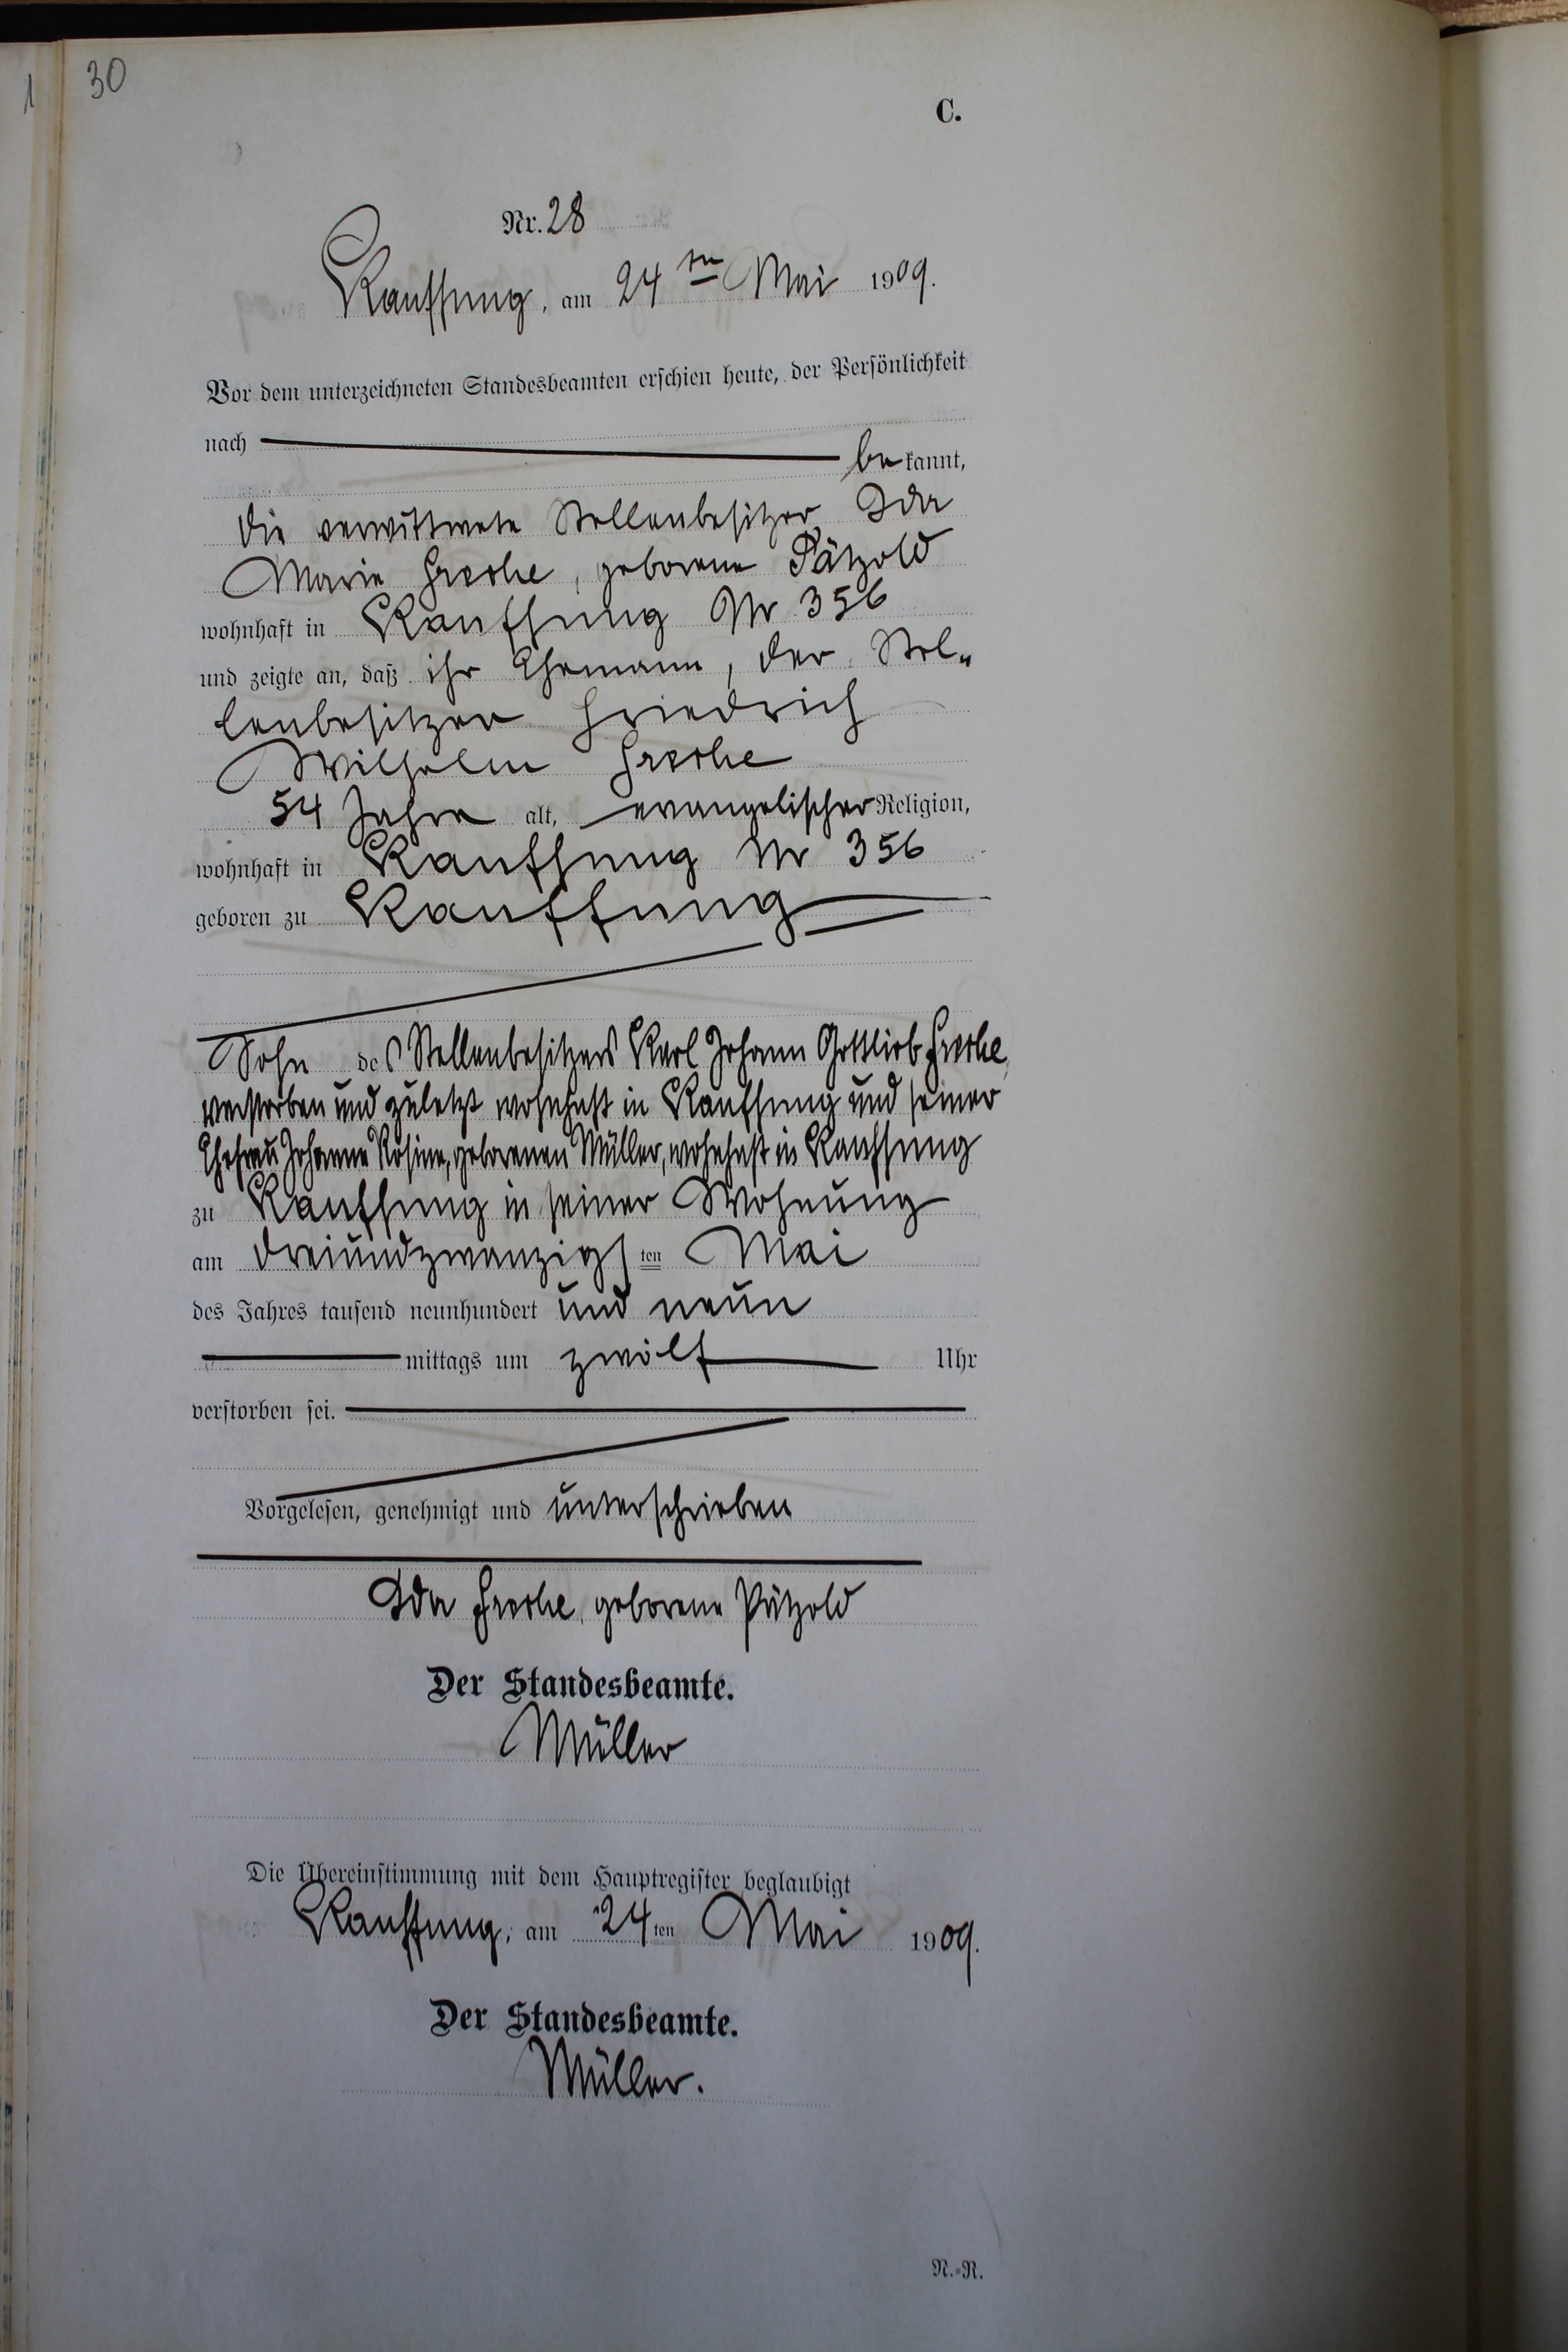 1 30
C.
Nr. 28
Kauffung, am 24ten Mai 1909.
Vor dem unterzeichneten Standesbeamten erschien heute, der Persönlichkeit
nach
bekannt,
die verwittwete Stellenbesitzer Ida
Marie Freche, geborene Pätzold
wohnhaft in Kauffung Nr 356
und zeigte an, daß ihr Ehemann, der Stel-
lenbesitzer Friedrich
Wilhelm Freche
54 Jahre alt, evangelischer Religion,
wohnhaft in Kauffung Nr 356
geboren zu Kauffung
Sohn des Stellenbesitzers Karl Johann Gottlieb Freche,
verstorben und zuletzt wohnhaft in Kauffung und seiner
Ehefrau Johanne Rosine, geborenen Müller, wohnhaft in Kauffung
zu Kauffung in seiner Wohnung
am dreiundzwanzigsten Mai
des Jahres tausend neunhundert und neun
mittags um zwölf Uhr
verstorben sei.
Vorgelesen, genehmigt und unterschrieben
Ida Freche, geborene Pätzold
Der Standesbeamte.
Müller
Die Übereinstimmung mit dem Hauptregister beglaubigt
Kauffung, am 24ten Mai 1909.
Der Standesbeamte.
Müller.
N.-R.